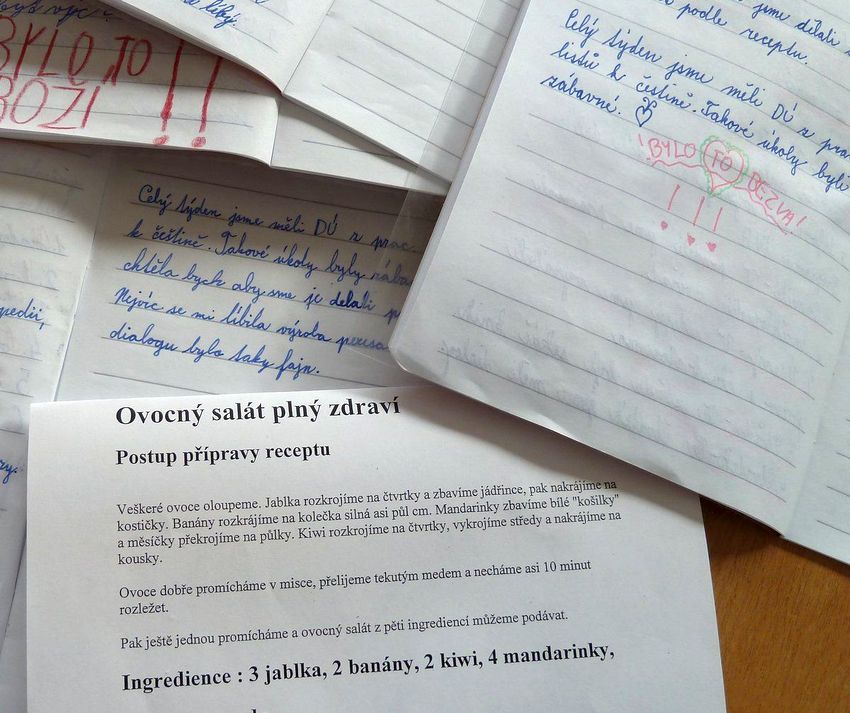 BYLO TO
BOŽÍ !!
líbý.
jsme dělali
podle receptu.
Celý týden jsme měli DÚ z pra
listů k češtině. Takové úkoly byli
zábavné.
BYLO TO BEZVA!
!!!
Celý týden jsme měli DÚ z prac.
k češtině. Takové úkoly byly zába
chtěla bych aby sme je delali p
Nejvíc se mi líbila výroba
dialogu bylo taky fajn.
pedii,
Ovocný salát plný zdraví
Postup přípravy receptu
Veškeré ovoce oloupeme. Jablka rozkrojíme na čtvrtky a zbavíme jádřince, pak nakrájíme na
kostičky. Banány rozkrájíme na kolečka silná asi půl cm. Mandarinky zbavíme bílé "košilky"
a měsíčky překrojíme na půlky. Kiwi rozkrojíme na čtvrtky, vykrojíme středy a nakrájíme na
kousky.
Ovoce dobře promícháme v misce, přelijeme tekutým medem a necháme asi 10 minut
rozležet.
Pak ještě jednou promícháme a ovocný salát z pěti ingrediencí můžeme podávat.
Ingredience : 3 jablka, 2 banány, 2 kiwi, 4 mandarinky,